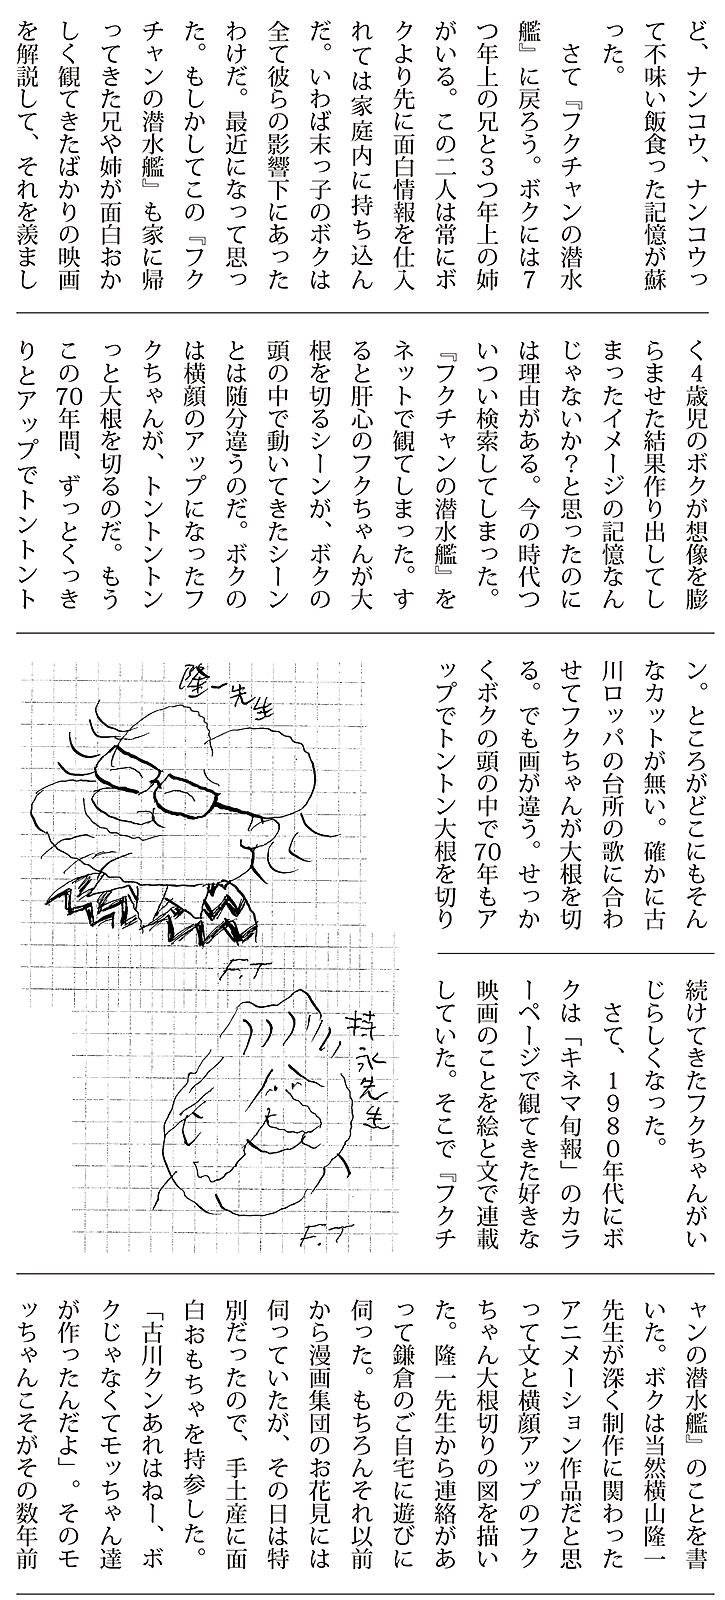 ど、ナンコウ、ナンコウっ
て不味い飯食った記憶が蘇
った。
さて『フクチャンの潜水
艦』に戻ろう。ボクには７
つ年上の兄と３つ年上の姉
がいる。この二人は常にボ
クより先に面白情報を仕入
れては家庭内に持ち込ん
だ。いわば末っ子のボクは
全て彼らの影響下にあった
わけだ。最近になって思っ
た。もしかしてこの『フク
チャンの潜水艦』も家に帰
ってきた兄や姉が面白おか
しく観てきたばかりの映画
を解説して、それを羨まし
く４歳児のボクが想像を膨
らませた結果作り出してし
まったイメージの記憶なん
じゃないか？と思ったのに
は理由がある。今の時代つ
いつい検索してしまった。
『フクチャンの潜水艦』を
ネットで観てしまった。す
ると肝心のフクちゃんが大
根を切るシーンが、ボクの
頭の中で動いてきたシーン
とは随分違うのだ。ボクの
は横顔のアップになったフ
クちゃんが、トントントン
っと大根を切るのだ。もう
この70年間、ずっとくっき
りとアップでトントント
ン。ところがどこにもそん
なカットが無い。確かに古
川ロッパの台所の歌に合わ
せてフクちゃんが大根を切
る。でも画が違う。せっか
くボクの頭の中で70年もア
ップでトントン大根を切り
隆一先生
F.T
続けてきたフクちゃんがい
じらしくなった。
さて、１９８０年代にボ
クは「キネマ旬報」のカラ
ーページで観てきた好きな
映画のことを絵と文で連載
していた。そこで『フクチ
持永先生
F.T
ャンの潜水艦』のことを書
いた。ボクは当然横山隆一
先生が深く制作に関わった
アニメーション作品だと思
って文と横顔アップのフク
ちゃん大根切りの図を描い
た。隆一先生から連絡があ
って鎌倉のご自宅に遊びに
伺った。もちろんそれ以前
から漫画集団のお花見には
伺っていたが、その日は特
別だったので、手土産に面
白おもちゃを持参した。
「古川クンあれはねー、ボ
クじゃなくてモッちゃん達
が作ったんだよ」。そのモ
ッちゃんこそがその数年前